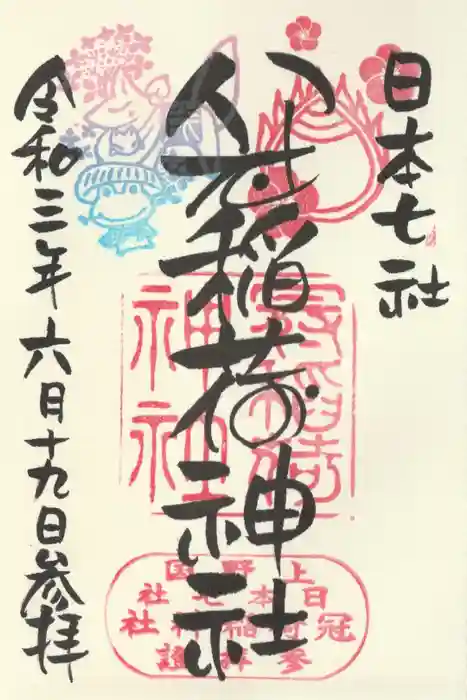 日本七社
冠稲荷神社
令和三年六月十九日参拝
神社
上野国
日本七社
冠稲荷神社
参拝證